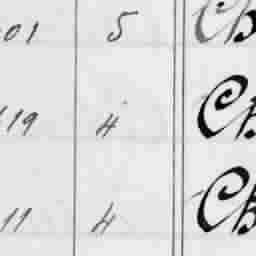 01 5 Св
19 4 Св
11 4 Св